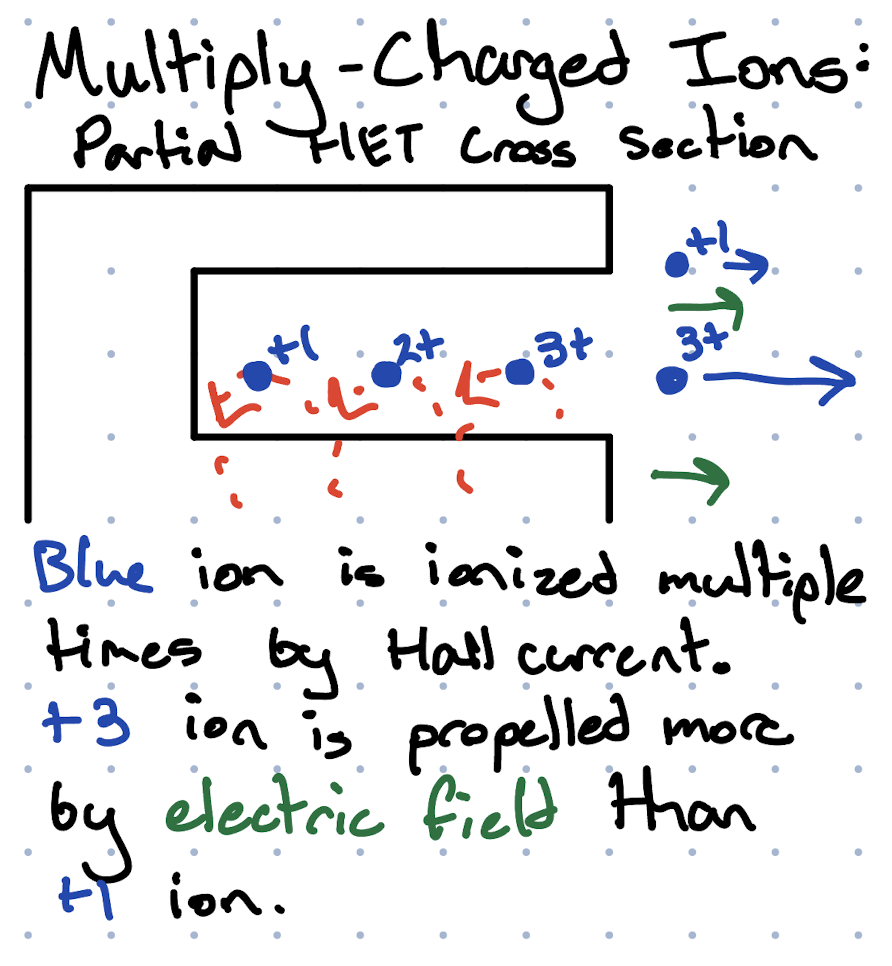 Multiply-Charged Ions:
Partial HET Cross Section
+1
3+
+1 2+ 3+
Blue ion is ionized multiple
times by Hall current.
+3 ion is propelled more
by electric field than
+1 ion.